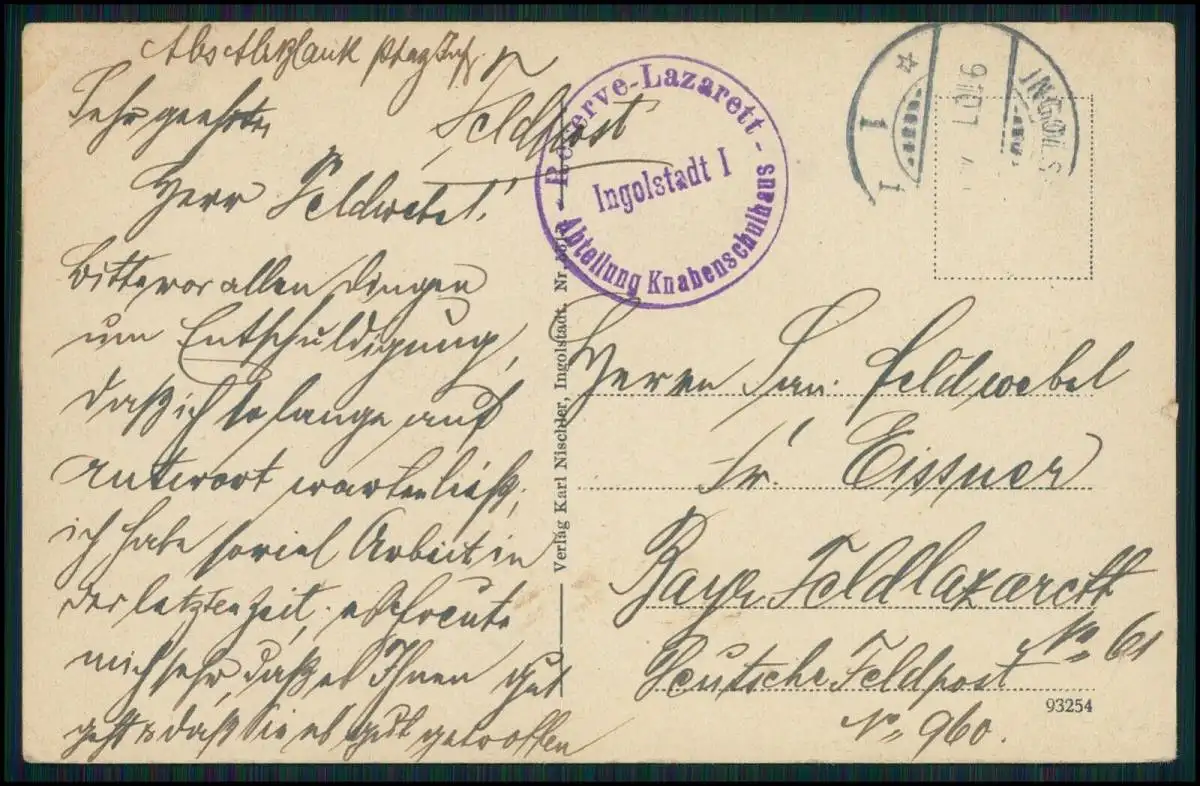 Feldpost
Sehr geehrter
Herr Feldwebel!
Bitte vor allen Dingen
um Entschuldigung,
daß ich so lange auf
Antwort warten ließ;
ich habe soviel Arbeit in
der letzten Zeit; es freute
mich sehr, daß es Ihnen gut
geht & daß Sie es gut getroffen
Reserve-Lazarett
Ingolstadt I
Abteilung Knabenschulhaus
Verlag Karl Nischler, Ingolstadt. Nr.
INGOLS
1 1
Herrn San. Feldwebel
Fr. Eissner
Bayr. Feldlazarett
No 61
Deutsche Feldpost
No 960.
93254